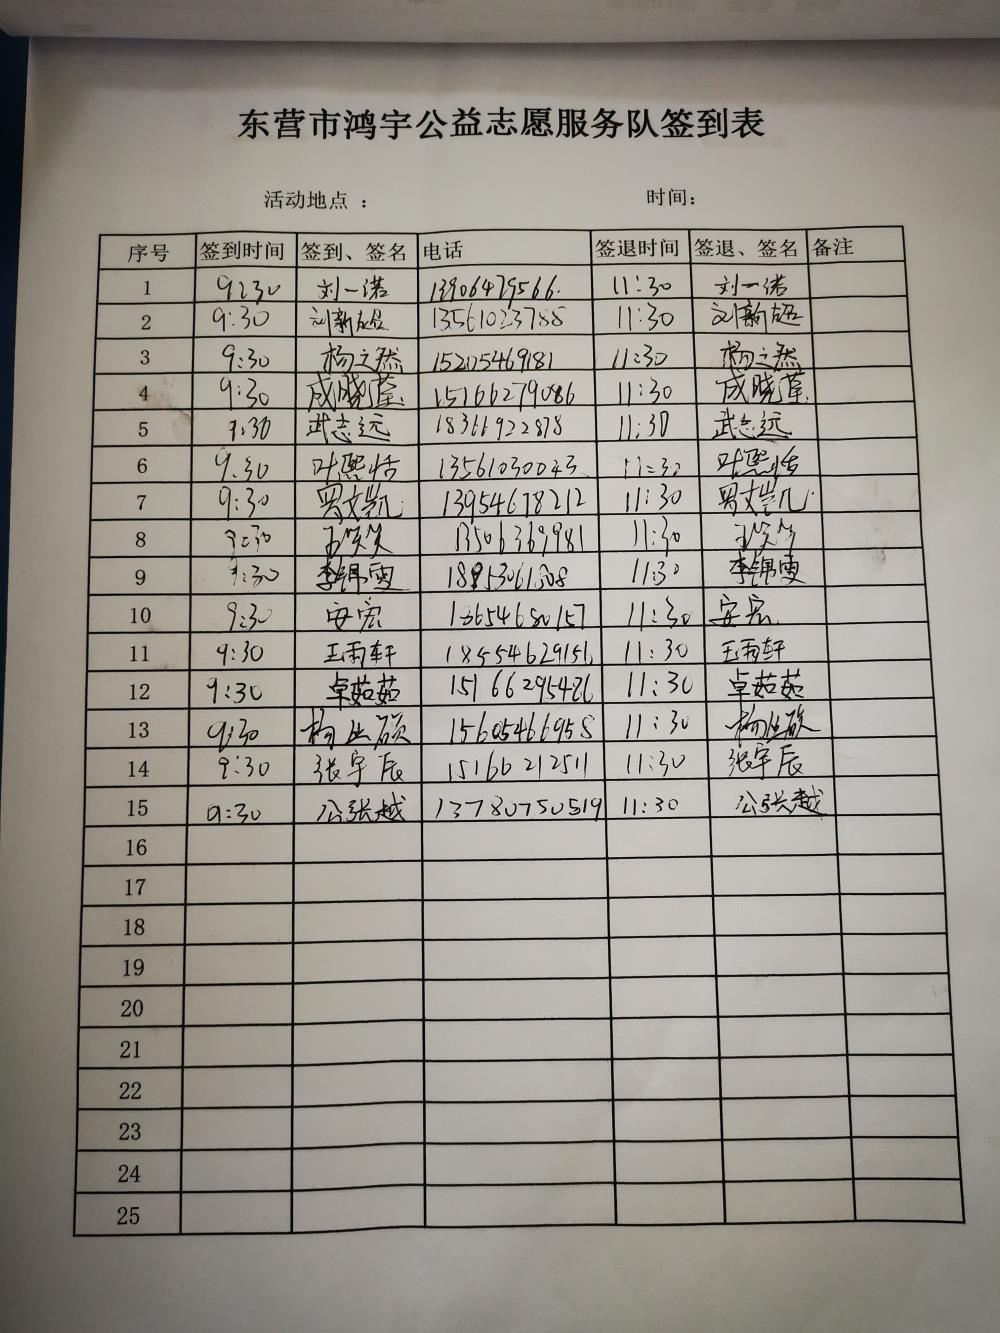 东营市鸿宇公益志愿服务队签到表
活动地点： 时间：
序号 签到时间 签到、签名 电话 签退时间 签退、签名 备注
1 9:30 刘一诺 13906479566. 11:30 刘一诺
2 9:30 刘新 13561023788 11:30 刘新
3 9:30 杨之然 15205469181 11:30 杨之然
4 9:30 成晓莹 15166279086 11:30 成晓莹
5 9:30 武志远 18366922878 11:30 武志远
6 9:30 叶熙恬 13561030043 11:30 叶熙恬
7 9:30 罗文凯 13954678212 11:30 罗文凯
8 9:30 王笑笑 13506369981 11:30 王笑笑
9 9:30 李锦雯 18853061808 11:30 李锦雯
10 9:30 安宏 13654680157 11:30 安宏
11 9:30 王雨轩 18554629156 11:30 王雨轩
12 9:30 卓茹茹 15166295426 11:30 卓茹茹
13 9:30 杨业硕 15605466958 11:30 杨业硕
14 9:30 张宇辰 15166212511 11:30 张宇辰
15 9:30 公张越 13780750519 11:30 公张越
16
17
18
19
20
21
22
23
24
25